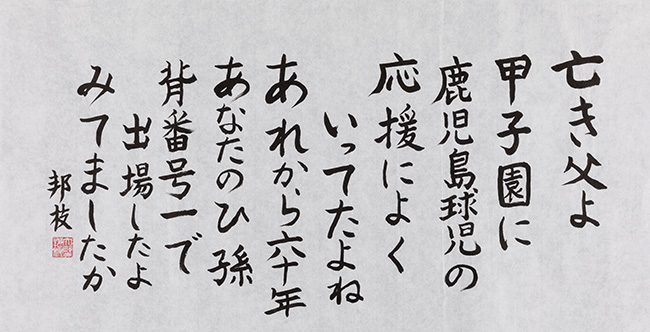 亡き父よ
甲子園に
鹿児島球児の
応援によく
いってたよね
あれから六十年
あなたのひ孫
背番号一で
出場したよ
みてましたか
邦枝